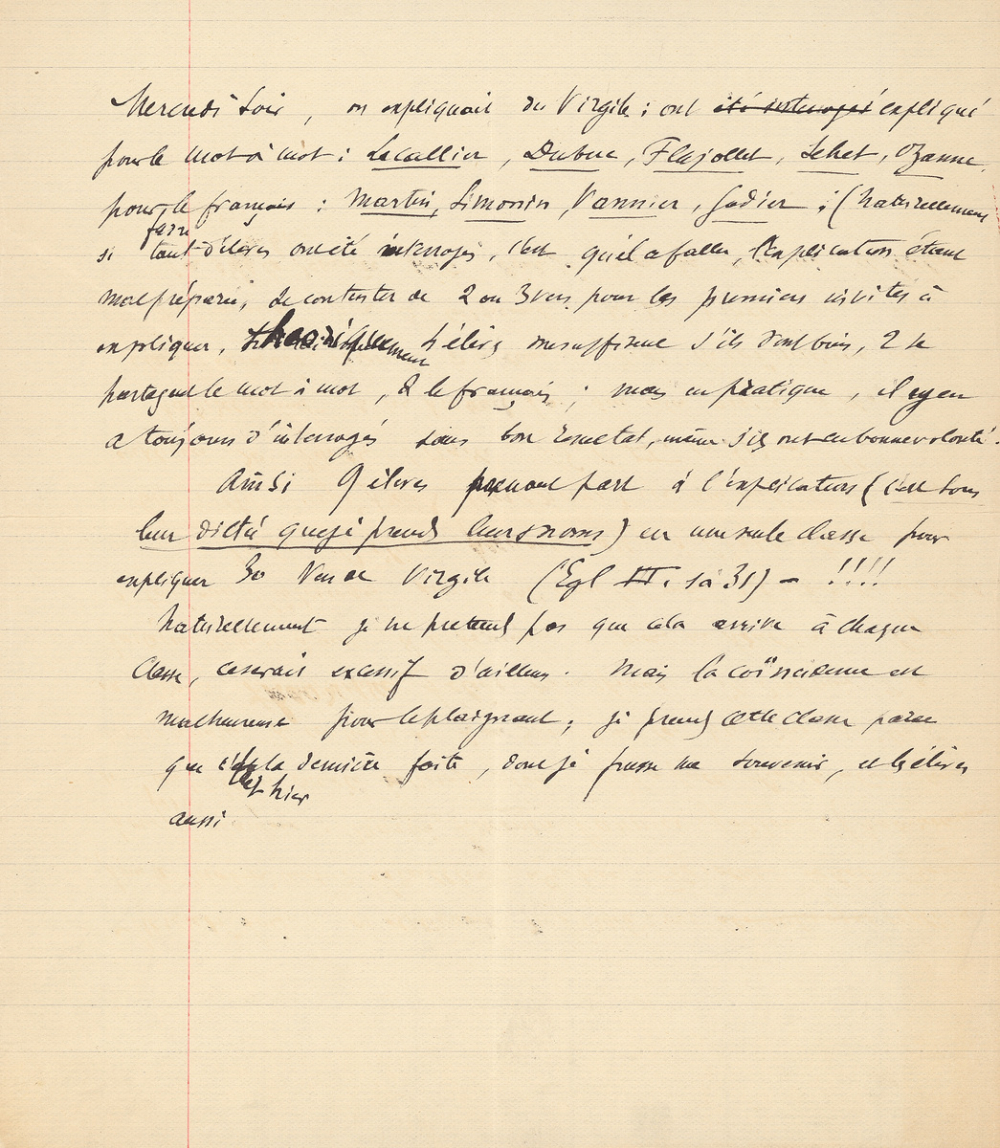 Mercredi soir, on expliquait du Virgile ; ont été interrogé expliqué
pour le mot à mot : Lecallier, Dubuc, Flajollet, Lehet, Ozanne,
pour le français : Martin, Simonin, Vannier, Gadier ; (naturellement
faire
si tant d'élèves ont été interrogés, c'est qu'il a fallu, l'explication étant
mal préparée, se contenter de 2 ou 3 vers pour les premiers invités à
expliquer, théoriquement élèves me suffisent s'ils sont bien, 2 se
partagent le mot à mot, & le français ; mais en pratique, il y en
a toujours d'interrogés sans bon résultat, même s'ils ont eu bonne volonté.
Ainsi 9 élèves prenant part à l'explication (c'est sous
leur dictée que je prends leurs noms) en une seule classe pour
expliquer 30 vers de Virgile (Egl III. 1 à 31) – !!!!
Naturellement je ne prétends pas que cela arrive à chaque
classe, ce serait excessif d'ailleurs. Mais la coïncidence est
malheureuse pour le plaignant ; je prends cette classe parce
que c'est la dernière faite, dont je puisse me souvenir, et les élèves
hier
aussi